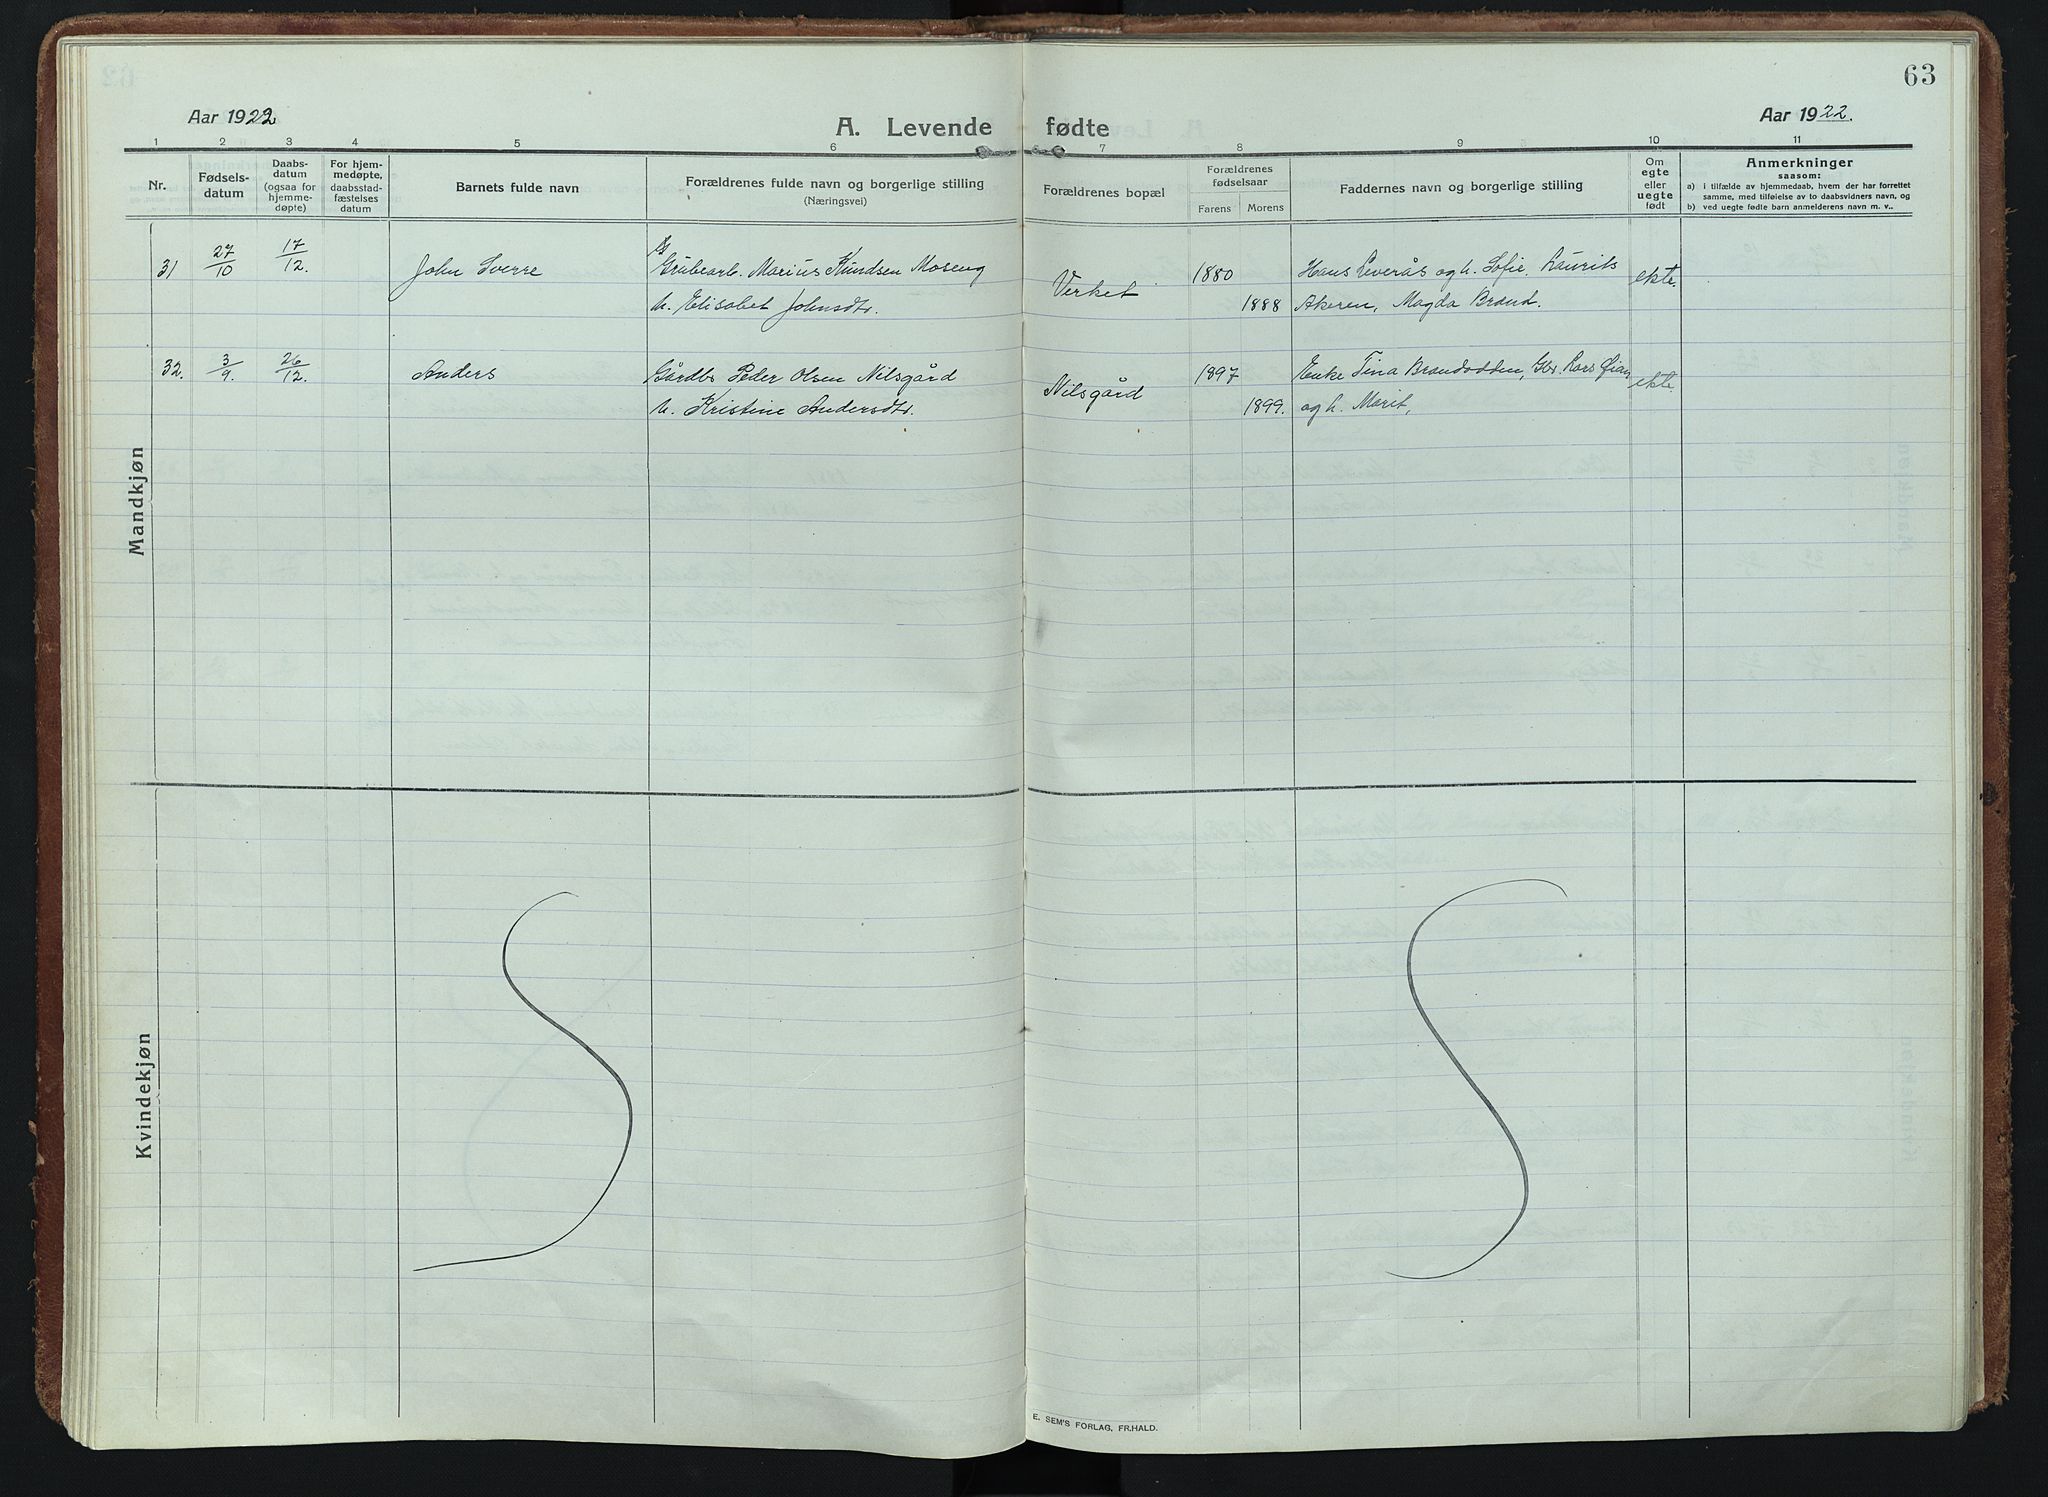 63
Aar 1922
Aar 1922.
A. Levende fødte
1 2 3 4 5 6 7 8 9 10 11
Nr.
Fødsels-
datum
Daabs-
datum
(ogsaa for
hjemme-
døpte)
For hjem-
medøpte,
daabsstad-
fæstelses
datum
Barnets fulde navn
Forældrenes fulde navn og borgerlige stilling
(Næringsvei)
Forældrenes bopæl
Forældrenes
fødselsaar
Farens Morens
Faddernes navn og borgerlige stilling
Om
egte
eller
uegte
født
Anmerkninger
saasom:
a) i tilfælde av hjemmedaab, hvem der har forrettet
samme, med tilføielse av to daabsvidners navn, og
b) ved uegte fødte barn anmelderens navn m. v..
Mandkjøn
31 27/10 17/12. John Sverre Grubearb. Marius Knudsen Moseng Verket 1880 Hans Leverås og h. Sofie, Laurits ekte.
h. Elisabet Johnsdtr. 1888 Akeren, Magda Brand.
32. 3/9. 26/12. Anders Gårdbr Peder Olsen Nilsgård Nilsgård 1897 Enke Tina Brandodden, Gbr. Lars Øian ekte
h. Kristine Andersdtr. 1899. og h. Marit,
Kvindekjøn
E. SEM'S FORLAG, FR.HALD.